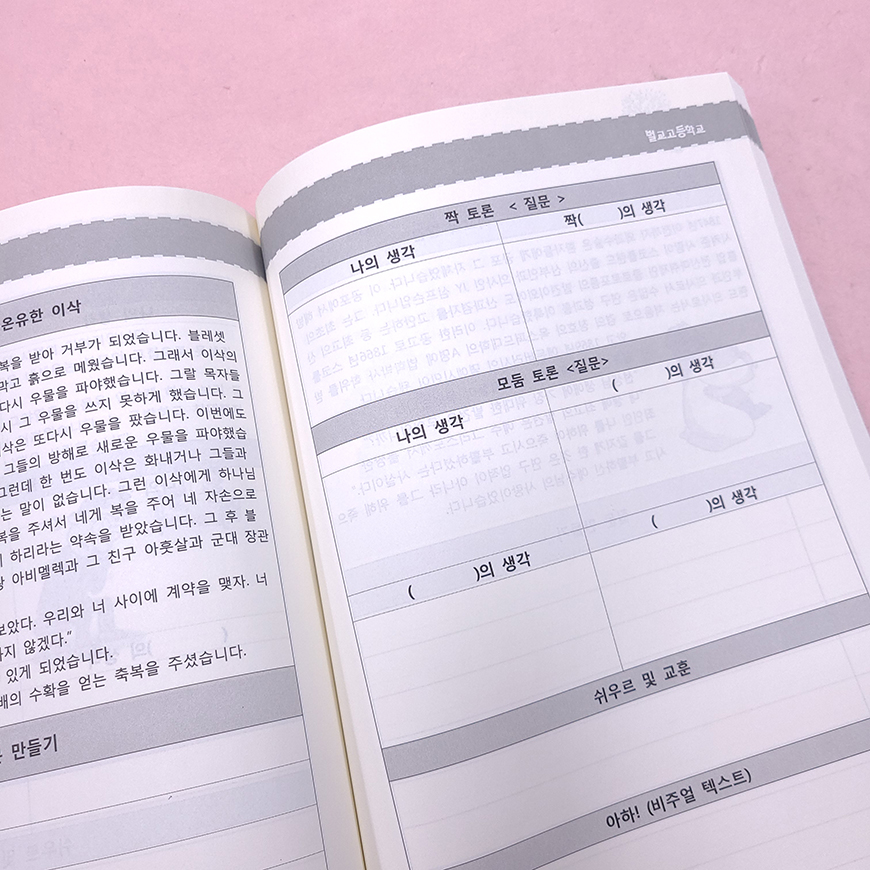 온유한 이삭
복을 받아 거부가 되었습니다. 블레셋
막고 흙으로 메웠습니다. 그래서 이삭의
다시 우물을 파야했습니다. 그랄 목자들
시 그 우물을 쓰지 못하게 했습니다. 그
삭은 또다시 우물을 팠습니다. 이번에도
그들의 방해로 새로운 우물을 파야했습
그런데 한 번도 이삭은 화내거나 그들과
는 말이 없습니다. 그런 이삭에게 하나님
복을 주셔서 네게 복을 주어 네 자손으로
하리라는 약속을 받았습니다. 그 후 블
왕 아비멜렉과 그 친구 아훗살과 군대 장관
보았다. 우리와 너 사이에 계약을 맺자. 너
하지 않겠다.”
있게 되었습니다.
배의 수확을 얻는 축복을 주셨습니다.
만들기
벌교고등학교
짝 토론 < 질문 >
나의 생각 짝( )의 생각
모둠 토론 <질문>
나의 생각 ( )의 생각
( )의 생각 ( )의 생각
쉬우르 및 교훈
아하! (비주얼 텍스트)